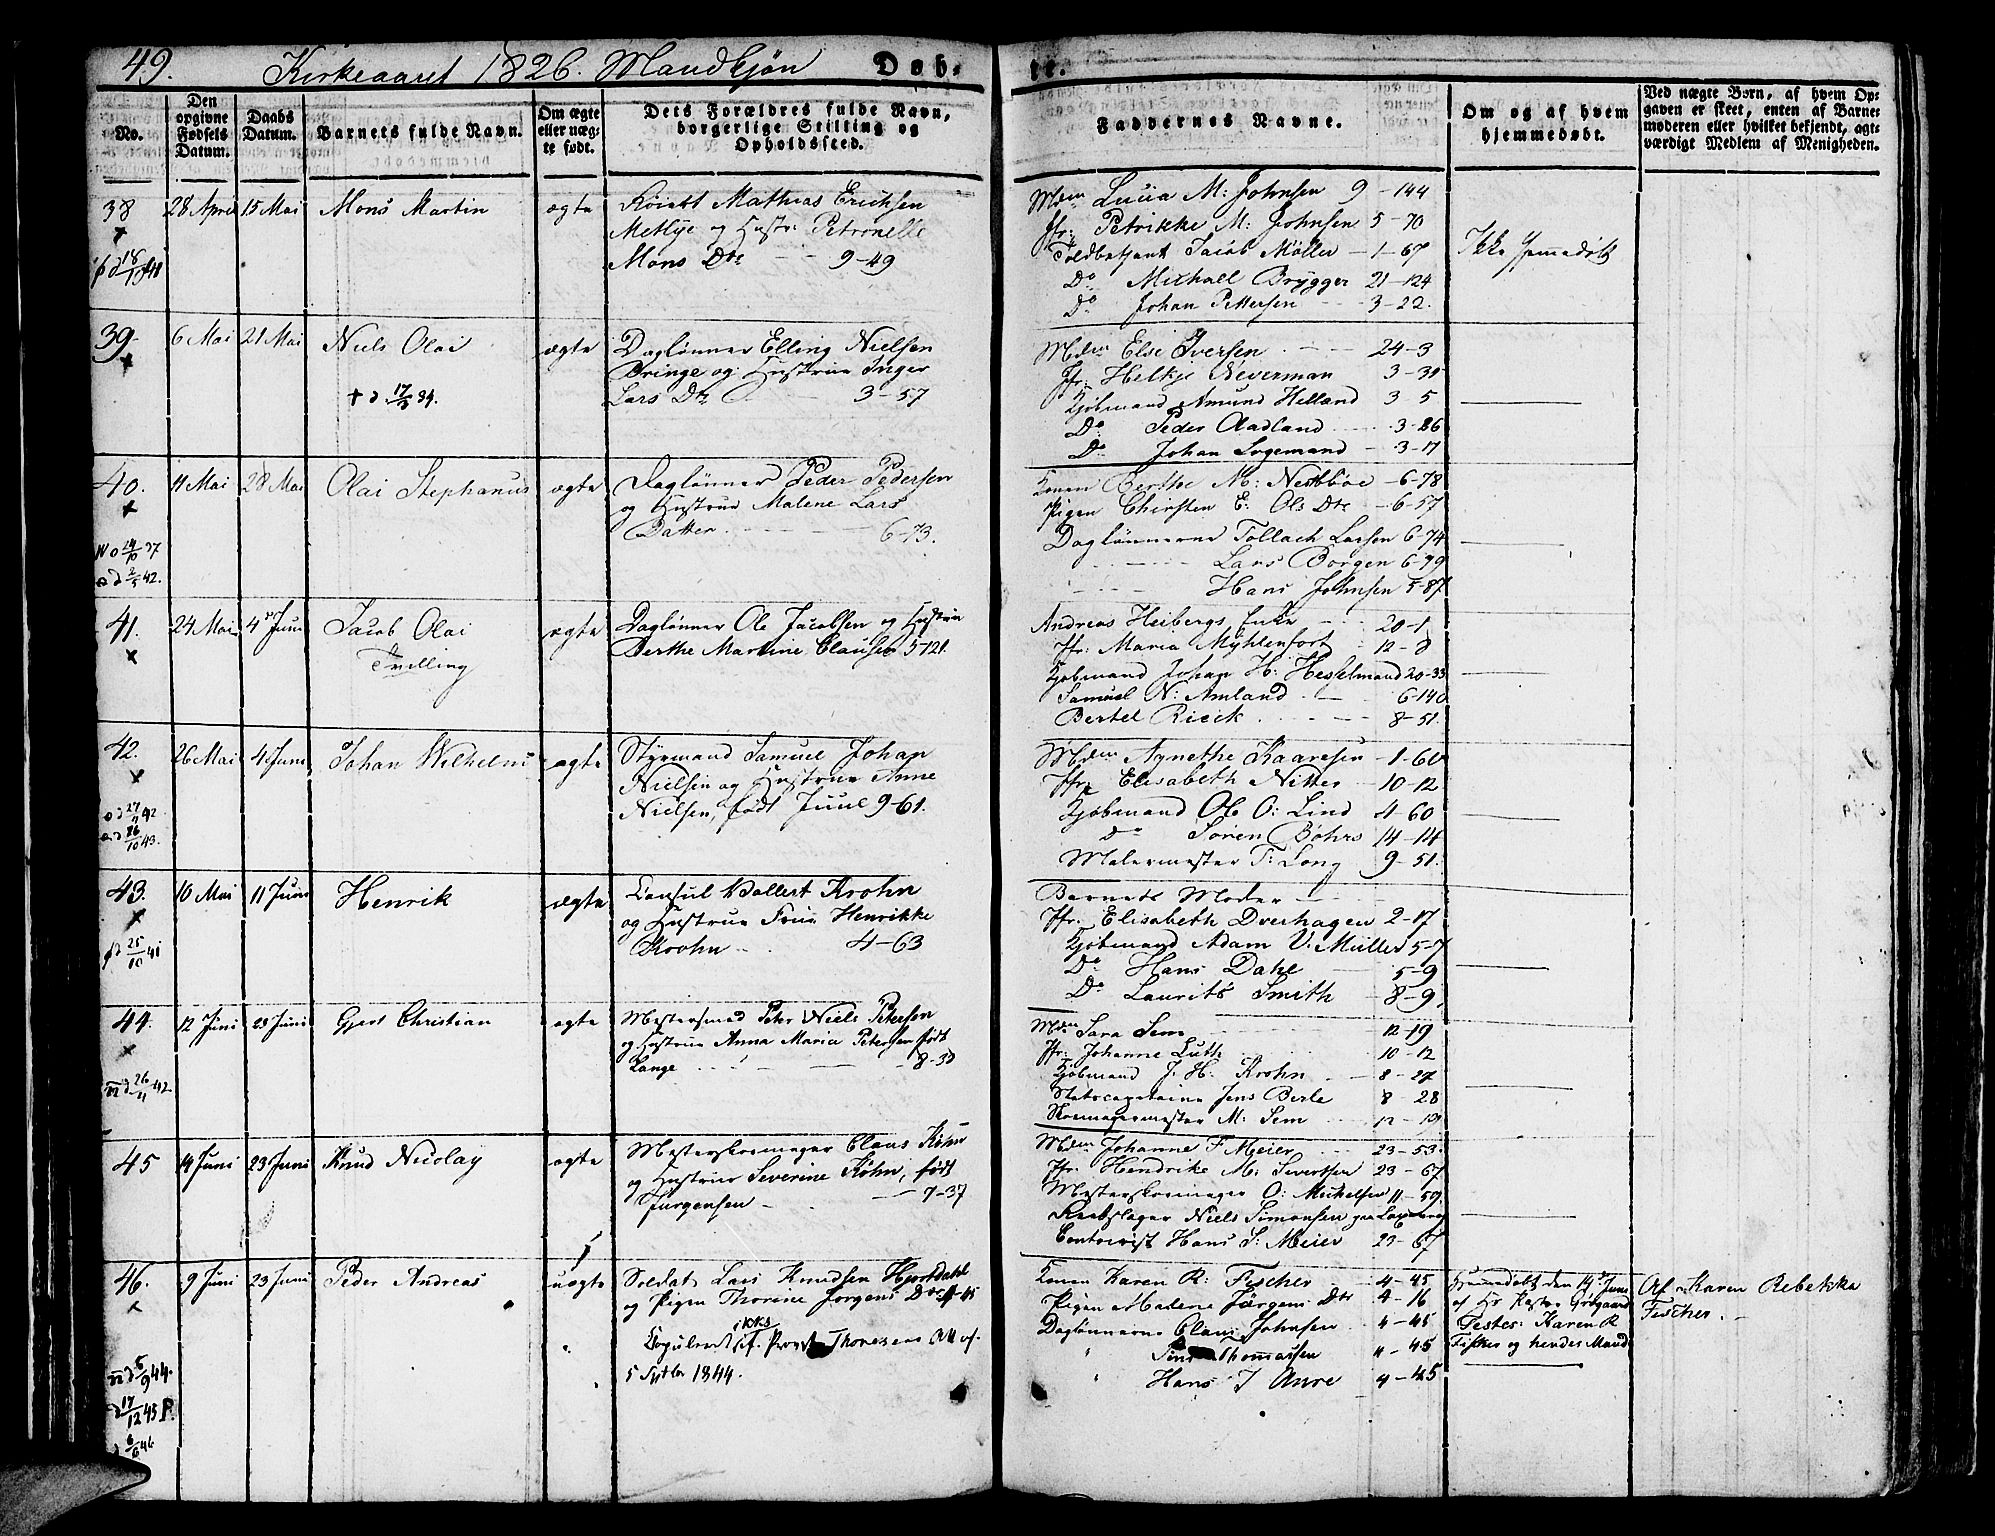 49. Kirkeaaret 1826. Mandkjøn Døb- te.
No.
Den opgivne Fødsels Datum.
Daabs Datum.
Barnets fulde Navn.
Om ægte eller uægte født.
Dets Forældres fulde Navn, borgerlige Stilling og Opholdssted.
Faddernes Navne.
Om og af hvem hjemmedøbt.
Ved uægte Børn, af hvem Opgaven er skeet, enten af Barnemoderen eller hvilket bekjendt, agtværdigt Medlem af Menigheden.
38 28 April 15 Mai Mons Martin ægte
Mathias Erichsen
og Hustr: Petronelle
Mons Dtr 9-49
Mdm Lucia M: Johnsen 9-144
Jfr: Petrikke M: Johnsen 5-70
Toldbetjent Jacob Møller 1-67
Do Michael Brygger 21-124
Do Johan Pettersen 3-22.
Ikke hjemmedøbt
39 6 Mai 21 Mai Niels Olai ægte
Daglønner Elling Nielsen
og Hustrue Inger
Lars Dtr 3-57
Mdm Else Iversen 24-3
Jfr: Neverman
Kjøbmand Amund Helland 3 5
Do Peder Aadland 3-86
Do Johan Logemand 3-17
40. 11 Mai 28 Mai Olai Stephanus ægte
Daglønner Peder Pedersen
og Hustrue Malene Lars
Datter 6-73.
Konen Berthe M: 6-78
Pigen Chirsten E: Ols Dtr 6-57
Daglønnerne Tollach Larsen 6-74
Lars Borgen 6-79
Hans Johnsen 5-87
41. 24 Mai 4 Juni Jacob Olai ægte
Tvilling
Daglønner Ole Jacobsen og Hustrue
Berthe Martine Clausen 5-121.
Andreas Heibergs Enke 20-1
Jfr: Maria Myhlenfort 12-8
Kjøbmand Johan H: Hesselmand 20-33
Samuel N: Amland 6-140
Bertel Rieck 8-51.
42. 26 Mai 4 Juni Johan Wilhelm ægte
Styrmand Samuel Johan
Nielsen og Hustrue Anne
Nielsen, født Juul 9-61.
Mdm Agnethe Kaaresen 1-60
Jfr Elisabeth Nitter 10-12
Kjøbmand Ole O: Lind 4 60
do Søren Bøhrs 14-14
Malermester T: Long 9-51.
43. 10 Mai 11 Juni Henrik ægte
Consul Wollert Krohn
og Hustrue Frue Henrikke
Krohn 4-63
Barnets Moder
Jfr: Elisabeth Dverhagen 2-17
Kjøbmand Adam V. Müller 5-7
Do Hans Dahl 5-9
Do Laurits Smith 8-9
44. 12 Juni 23 Juni Gjert Christian ægte
Mestersmed Peter Niels Petersen
og Hustrue Anna Maria Petersen født
Lange
Mdm Sara Sem 12-19
Jfr: Johanne Luth 10-12
Kjøbmand J. H: Krohn 8-27
Statscapitaine Jens Berle 8-28
Skomagermester M: Sem 12-19
45 14 Juni 23 Juni Knud Nicolay ægte
Mesterskomager Claus Køhn
og Hustrue Severine Køhn, født
Jürgensen 7-37
Mdm Johanne F Meier 23-53.
Jfr: Hendrike M: Severtsen 23-67
Mesterskomager O: Mikelsen 11-59.
Reebslager Niels Simonsen
Contorist Hans S: Meier 23-67
46. 9 Juni 23 Juni Peder Andreas uægte
Soldat Lars Knudsen Hjortdahl
og Pigen Thorine Jørgens Dtr 4-45
Copuleret
5 Septbr 1844.
Konen Karen R: Fischer 4-45
Pigen Malene Jørgens Dtr 4-16
Daglønnerne Claus Johnsen 4-45
Jens Thomassen 4-45
Hans J Aure 4-45
Hjemmedøbt den 14d Juni
af Hr Pastor Grøgaard
Testes: Karen R
Fischer og hendes Mand
Af Karen Rebekka
Fischer.